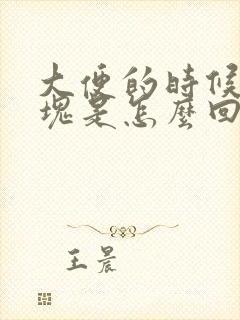 大便的時候
塊是怎麼回
王晨